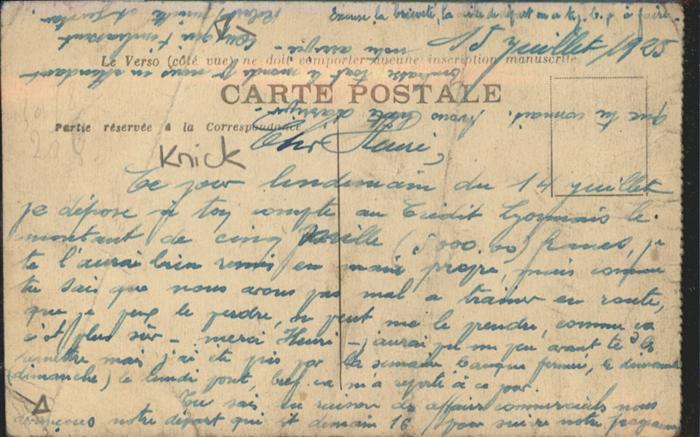 Excuse la brièveté, la suite du départ m'a
15 juillet 1925
Le Verso (côté vue) ne doit comporter aucune inscription manuscrite
CARTE POSTALE
Partie réservée à la Correspondance
Knick
Cher Henri,
Ce jour lendemain du 14 juillet
je dépose à toy compte au Crédit Lyonnais le
montant de cinq mille (5000.00) francs, je
te l'aurai bien remis en main propre, mais comme
tu sais que nous avons pas mal a trainer en route,
que je peux le perdre, on peut me le prendre, comme ça
c'est plus sûr - merci Henri - j'aurai pu un peu avant te les
remettre mais j'ai été pris par la semaine, banque fermé, le dimanche
(dimanche) le lundi pont, bref ça m'a reporté à ce jour.
Tu sais, en raison des affaires commerciales nous
avançons notre départ qui est demain 16 pour suivre notre programme
que tu connais.
embrasse tout le monde
en attendant